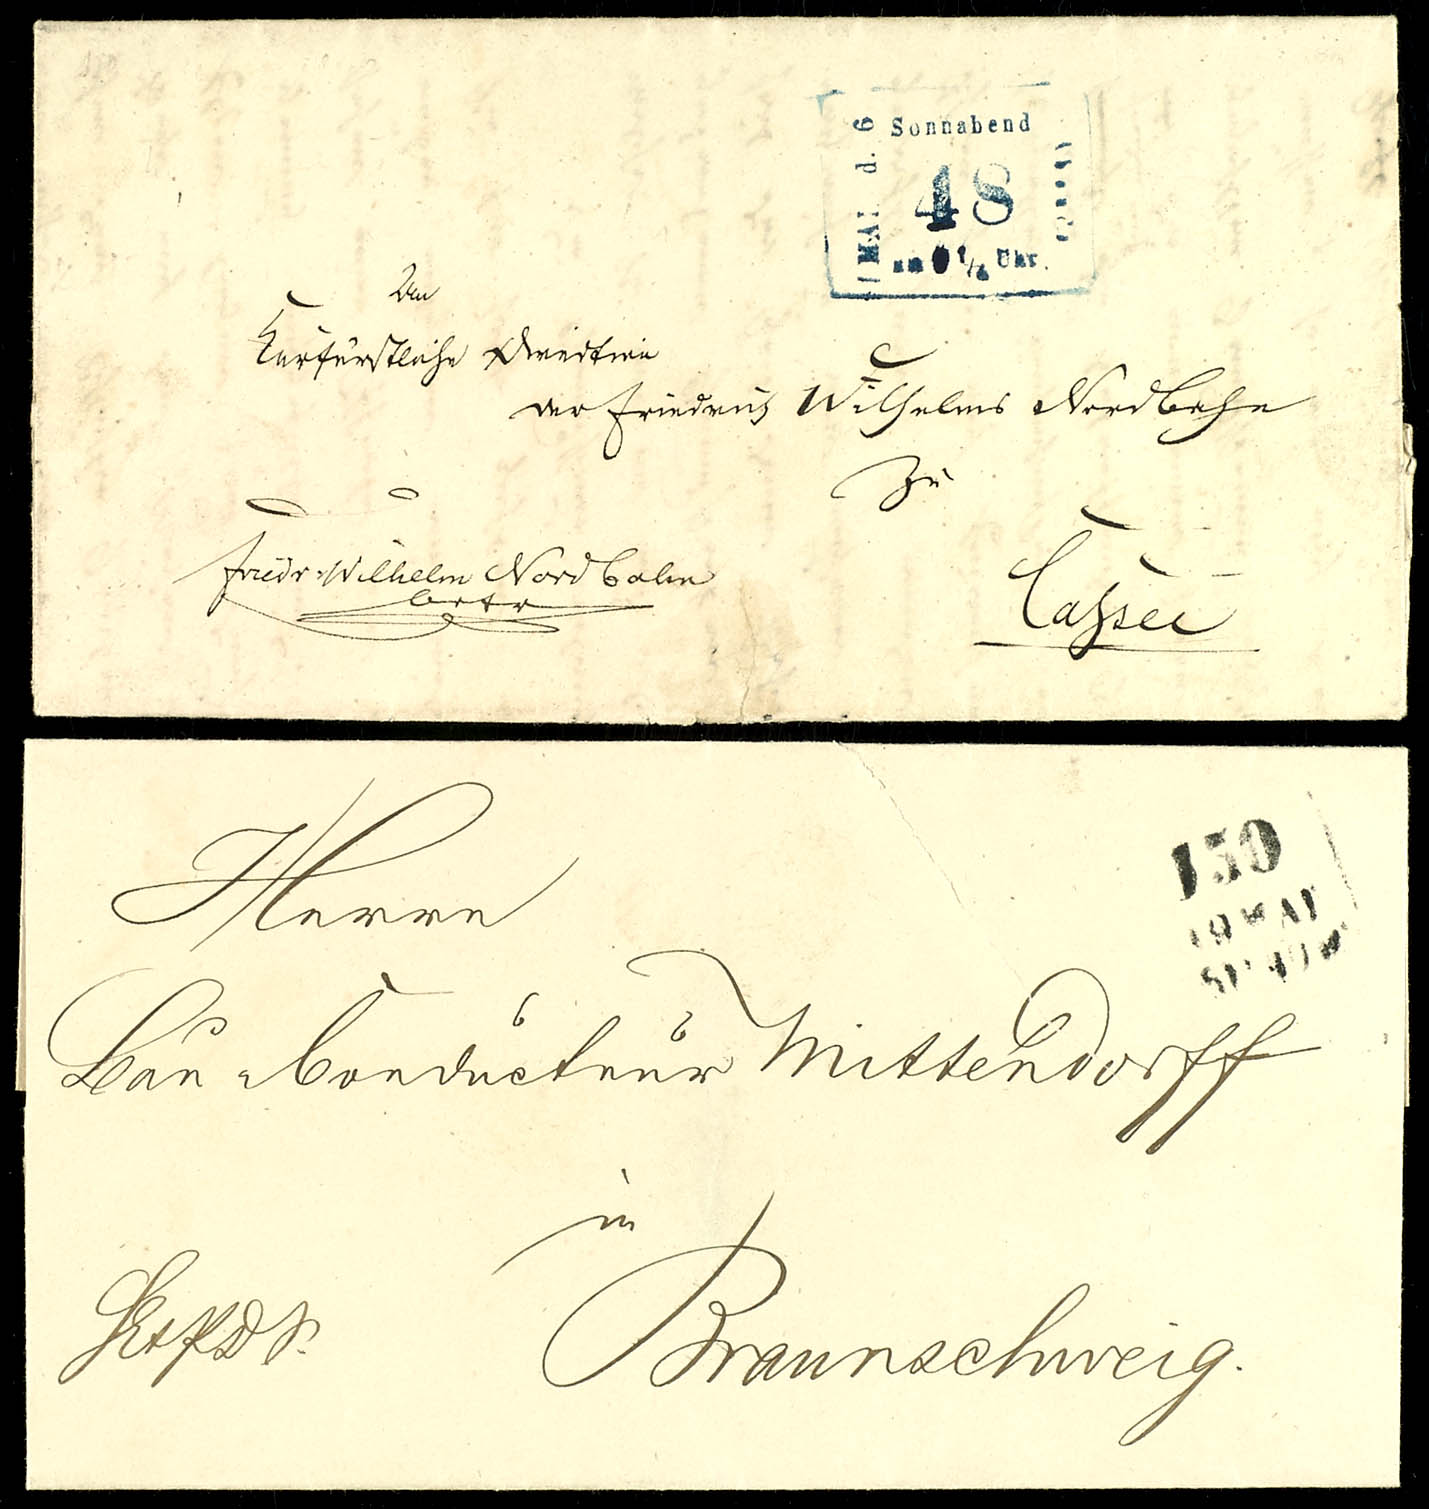 Sonnabend
MAI. d. 6
48
um 1/2 Uhr.
An
Kurfürstliche Direction
der Friedrich Wilhelms Nordbahn
zu
Cassel
Friedr. Wilhelm Nordbahn
betr
150
MAI
Herrn
Bau Conducteur Mittendorff
in
Braunschweig.